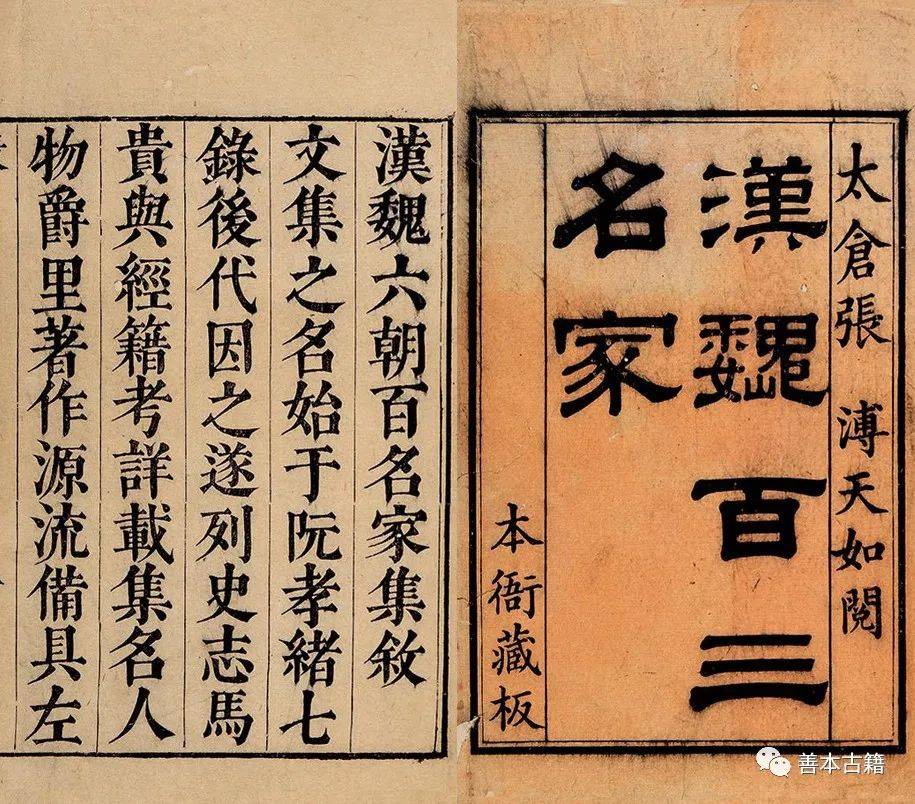 太倉張 溥天如閱
漢魏百三
名家
本衙藏板
漢魏六朝百名家集敘
文集之名始于阮孝緒七
錄後代因之遂列史志馬
貴與經籍考詳載集名人
物爵里著作源流備具左
善本古籍